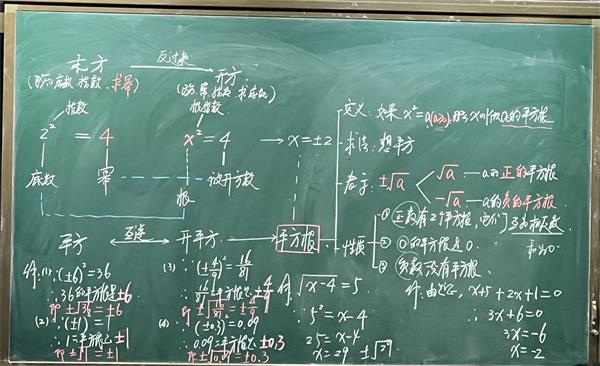 乘方 反过来 开方
(已知底数、指数,求幂)
(已知幂、指数,求底数)
指数 根指数
2² = 4
x² = 4 → x = ±2
底数 幂 根 被开方数
平方 互逆 开平方 → 平方根
定义:如果 x² = a(a≥0),那么x叫做a的平方根
求法:想平方
表示:±√a
√a — a的正的平方根
-√a — a的负的平方根
性质
① 正数有2个平方根,它们互为相反数
和为0
② 0的平方根是0.
③ 负数没有平方根.
例:(1) ∵(±6)²=36
∴36的平方根是±6
即±√36=±6
(2) ∵(±1)²=1
∴1的平方根是±1
即±√1=±1
(3) ∵(±4/9)²=16/81
∴16/81的平方根是±4/9
即±√16/81=±4/9
(4) ∵(±0.3)²=0.09
∴0.09的平方根是±0.3
即±√0.09=±0.3
例. √x-4 = 5
∴ 5² = x-4
25 = x-4
x = 29 ±√29
例:由题意, x+5+2x+1=0
∴ 3x+6=0
3x=-6
x=-2